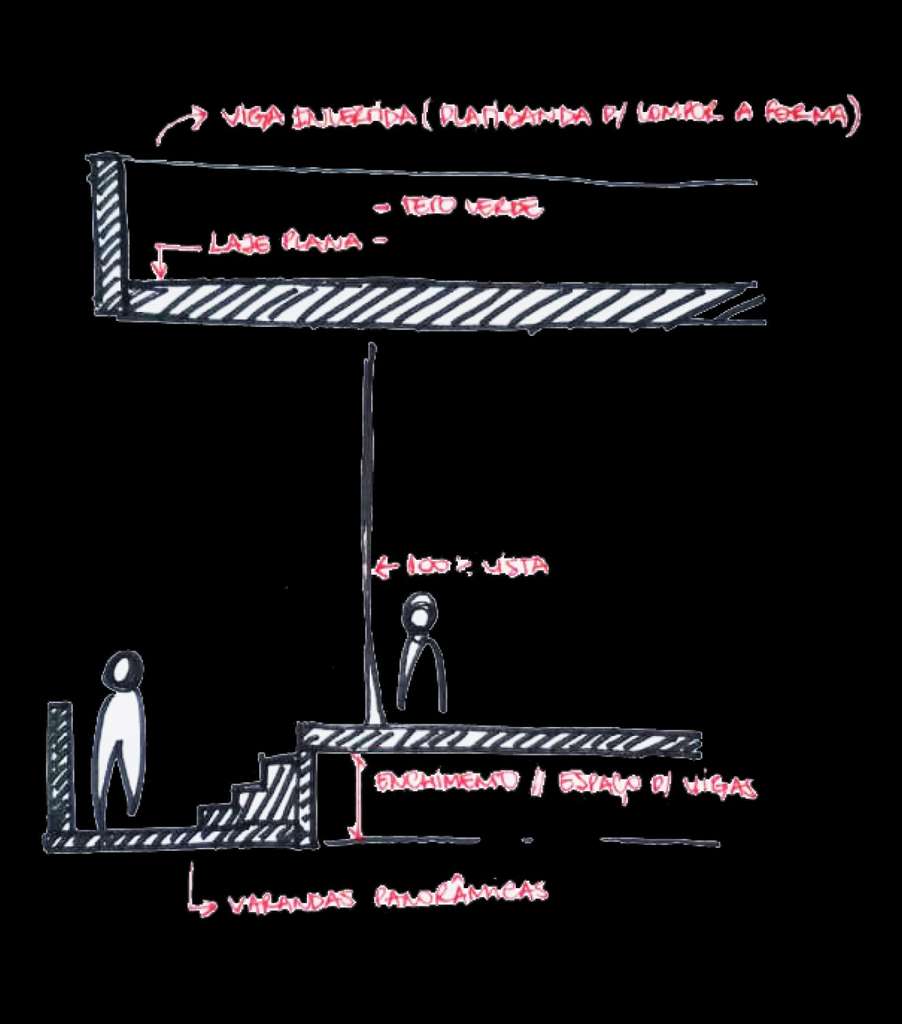 VIGA INVERTIDA (PLATIBANDA P/ COMPOR A FORMA)
- TETO VERDE
LAJE PLANA -
100% VISTA
ENCHIMENTO // ESPAÇO P/ VIGAS
VARANDAS PANORÂMICAS